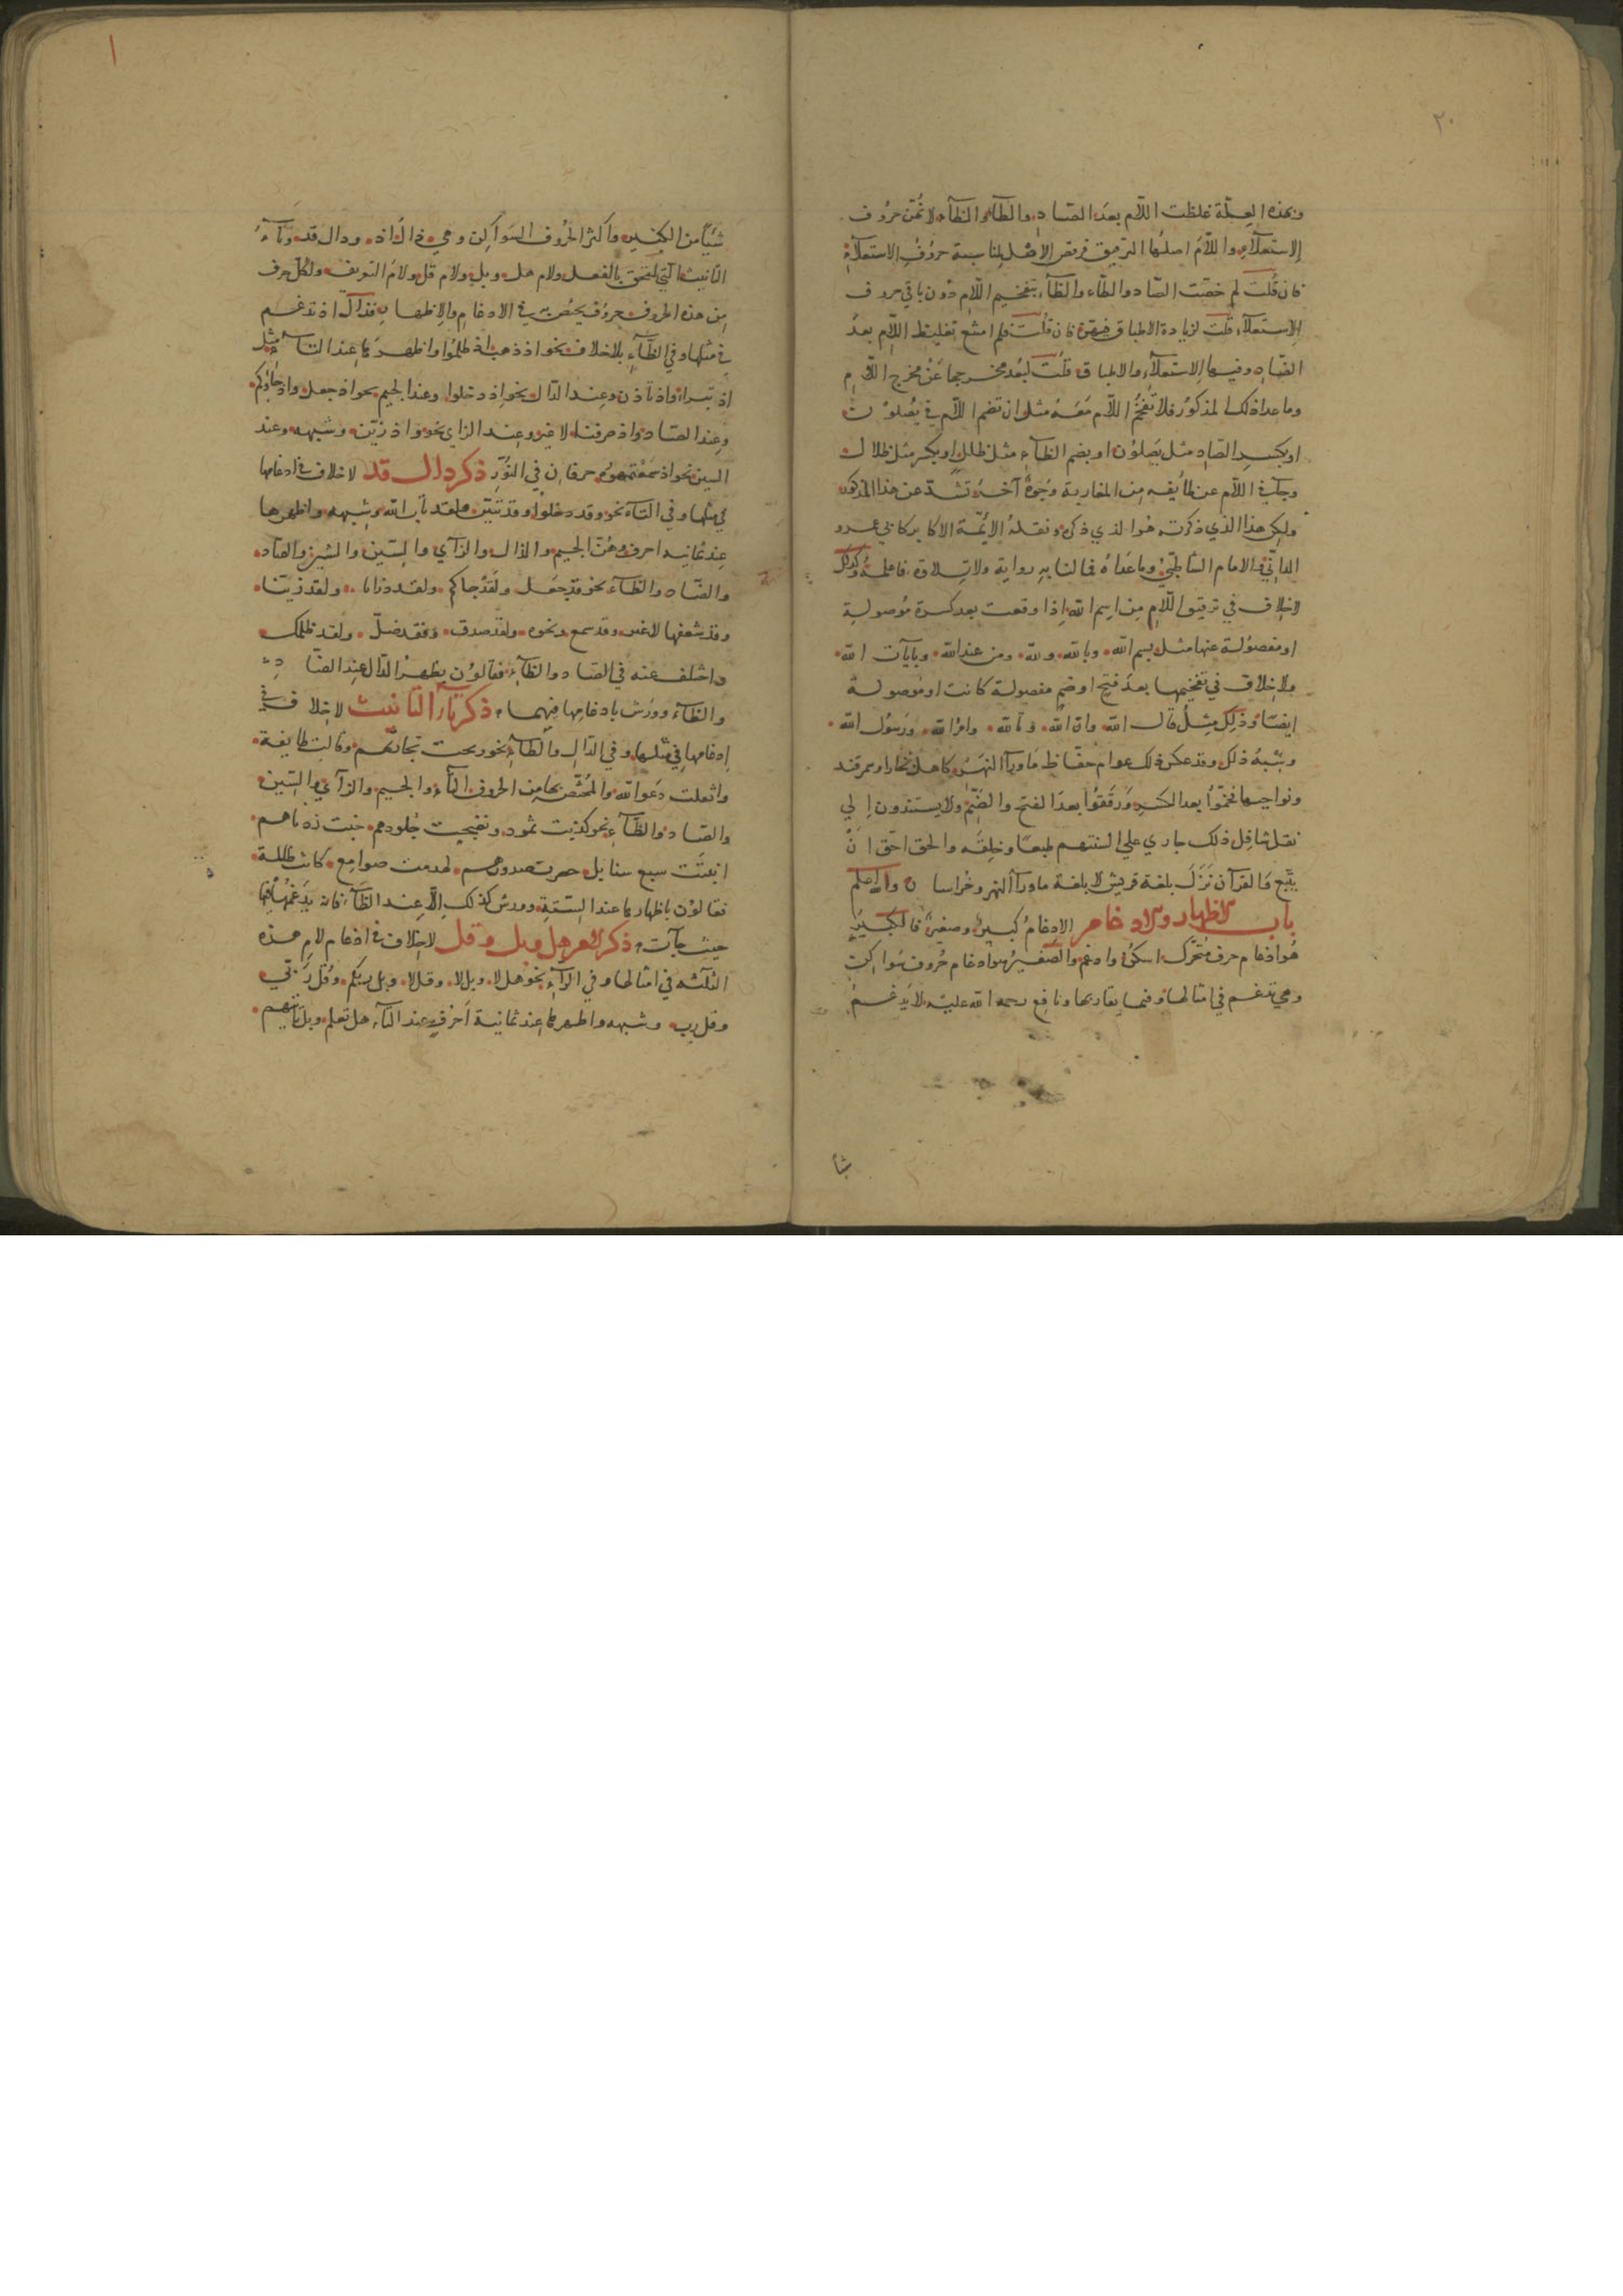 ٢٠
وبهذه العلة غلظت اللام بعد الصاد والطاء والظاء لانهن حروف
الاستعلاء واللام اصلها الترقيق فرفض الاصل لمناسبة حروف الاستعلاء
فان قلت لم خصت الصاد والطاء والظاء بتفخيم اللام دون باقي حروف
الاستعلاء قلت لزيادة الاطباق فيهن فان قلت فلم امتنع تغليظ اللام بعد
الضاد وفيها الاستعلاء والاطباق قلت لبعد مخرجها عن مخرج اللام
وما عدا ذلك المذكور فلا تفخم اللام معه مثل ان تضم اللام في يصلون
او بكسر الصاد مثل يصلون او بضم الظاء مثل ظلل او بكسر مثل ظلال
وجاء في اللام عن طائفه من المغاربة وجوه آخر تشذ عن هذا المذكور
ولكن هذا الذي ذكرته هو الذي ذكره ونقله الائمة الاكابر كابي عمرو
الداني والامام الشاطبي وما عداه فما لنا به رواية ولا تلاوة فاعلمه وكذلك
لاخلاف في ترقيق اللام من اسم الله اذا وقعت بعد كسرة موصولة
او مفصولة عنها مثل بسم الله وبالله ولله ومن عند الله وبآيات الله
ولاخلاف في تفخيمها بعد فتح او ضم مفصولة كانت او موصولة
ايضا وذلك مثل قال الله وان الله وتالله وامر الله ورسول الله
وشبه ذلك وقد عكس ذلك عوام حفاظ ماوراء النهر كاهل بخارا وسمرقند
ونواحيها ففخموا بعد الكسر ورققوا بعد الفتح والضم ولا يستندون الي
نقل ذلك جاري علي السنتهم طبعا وخلقه والحق احق ان
يتبع فالقرآن نزل بلغة قريش لا بلغة ماوراء النهر وخراسان والله اعلم
باب الاظهار والادغام الادغام كبير وصغير فالكبير
هو ادغام حرف متحرك اسكن وادغم والصغير هو ادغام حروف سواكن
وهي تدغم في امثالها وفيما يقاربها ونافع رحمه الله عليه لا يدغم
شيأ
شيأ من الكبير واكثر الحروف السواكن وهي ذال اذ ودال قد وتاء
التانيث التي تلحق بالفعل ولام هل وبل ولام قل ولام التعريف ولكل حرف
من هذه الحروف حروف يختص به في الادغام والاظهار فذال اذ تدغم
في مثلها وفي الظاء بلاخلاف نحو اذ ذهب اذ ظلموا واظهرها عند التاء مثل
اذ تبرا واذ تاذن وعند الدال نحو اذ دخلوا وعند الجيم نحو اذ جعل واذ جاؤكم
وعند الصاد واذ صرفنا لا غير وعند الزاي نحو واذ زين وشبهه وعند
السين نحو اذ سمعتموه حرفان في النور ذكر دال قد لاخلاف في ادغامها
في مثلها وفي التاء نحو وقد دخلوا وقد تبين ولقد تاب الله وشبهه واظهرها
عند ثمانيه احرف وهن الجيم والذال والزاي والسين والشين والصاد
والضاد والظاء نحو قد جعل ولقد جاكم ولقد ذرانا ولقد زينا
وقد شغفها لا غير وقد سمع ونحوه ولقد صدق وفقد ضل ولقد ظلمك
واختلف عنه في الضاد والظاء فقالون يظهر الدال عند الضاد
والظاء وورش بادغامها فيهما ذكر تاء التانيث لاخلاف في
ادغامها في مثلها وفي الدال والطاء نحو ربحت تجارتهم وقالت طايفة
واثقلت دعوا الله والمختص بها من الحروف الثاء والجيم والزاي والسين
والصاد والظاء نحو كذبت ثمود ونضجت جلودهم خبت زدناهم
انبتت سبع سنابل حصرت صدورهم لهدمت صوامع كانت ظالمة
فقالون باظهارها عند الستة وورش كذلك الا عند الظاء فانه يدغمها فيها
حيث جاءت ذكر لام هل وبل وقل لاخلاف في ادغام لام هذه
الثلثه في امثالها وفي الراء نحو هل لا وبل لا وقل لا وبل ربكم وقل ربي
وقل رب وشبهه واظهرها عند ثمانية احرف عند التاء هل تعلم وبل تاتيهم